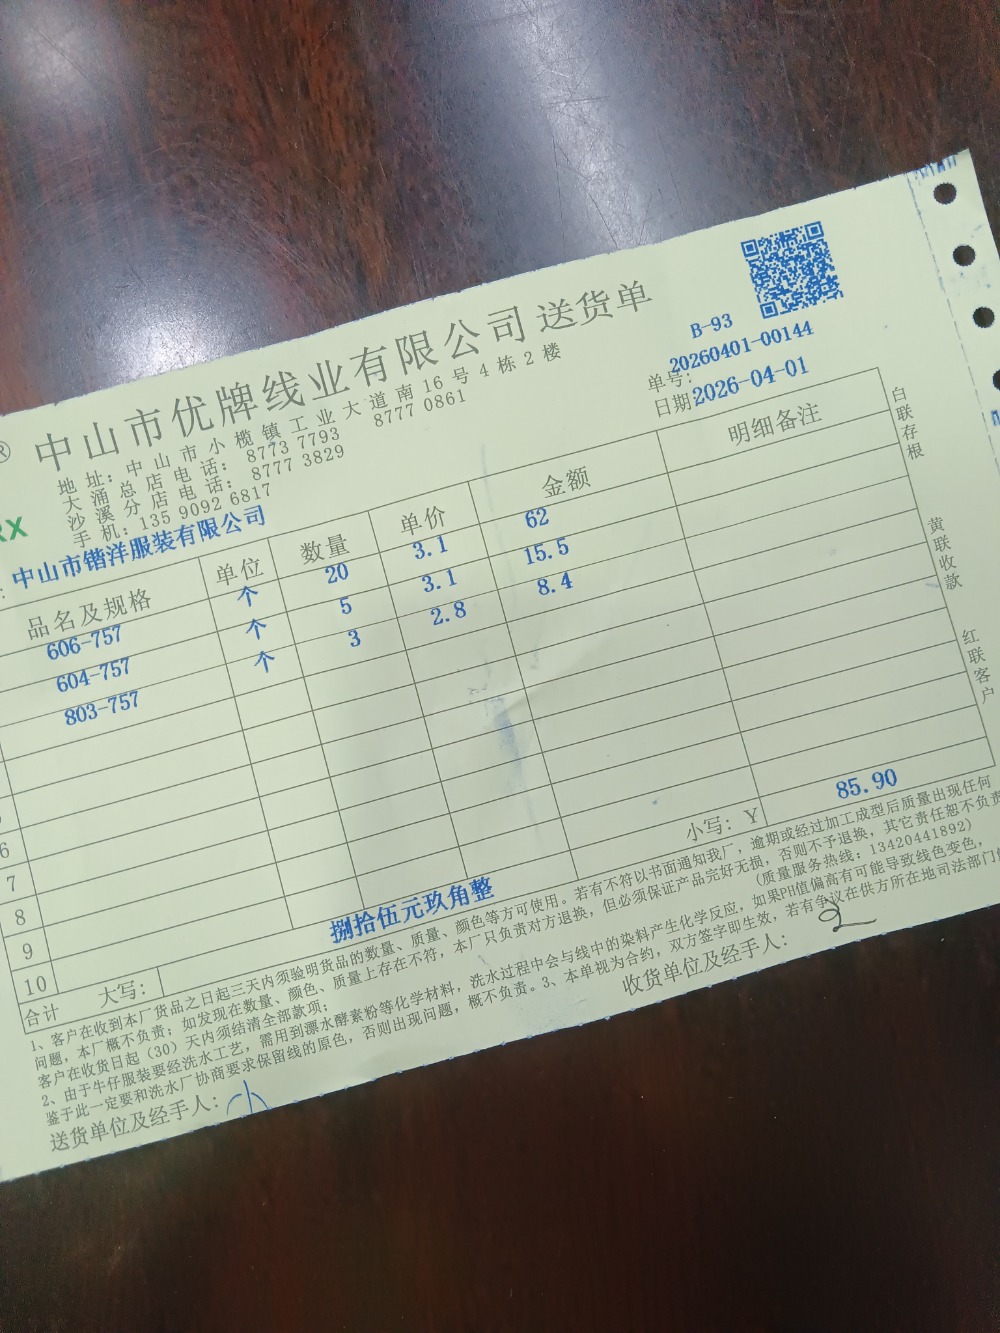 ® 中山市优牌线业有限公司 送货单
地址：中山市小榄镇工业大道南16号4栋2楼
大涌总店电话：8773 7793 8777 0861
沙溪分店电话：8777 3829
手机：135 9092 6817
RX
B-93
单号：20260401-00144
日期 2026-04-01
：中山市锴洋服装有限公司
品名及规格 单位 数量 单价 金额 明细备注
606-757 个 20 3.1 62
604-757 个 5 3.1 15.5
803-757 个 3 2.8 8.4
6
7
8
9
10
合计 大写： 捌拾伍元玖角整 小写：Y 85.90
白联存根
黄联收款
红联客户
1、客户在收到本厂货品之日起三天内须验明货品的数量、质量、颜色等方可使用。若有不符以书面通知我厂，逾期或经过加工成型后质量出现任何
问题，本厂概不负责；如发现在数量、颜色、质量上存在不符，本厂只负责对方退换，但必须保证产品完好无损，否则不予退换，其它责任恕不负责
客户在收货日起（30）天内须结清全部款项； （质量服务热线：13420441892）
2、由于牛仔服装要经洗水工艺，需用到漂水酵素粉等化学材料，洗水过程中会与线中的染料产生化学反应，如果PH值偏高有可能导致线色变色，
鉴于此一定要和洗水厂协商要求保留线的原色，否则出现问题，概不负责。3、本单视为合约，双方签字即生效，若有争议在供方所在地司法部门
送货单位及经手人： 收货单位及经手人：